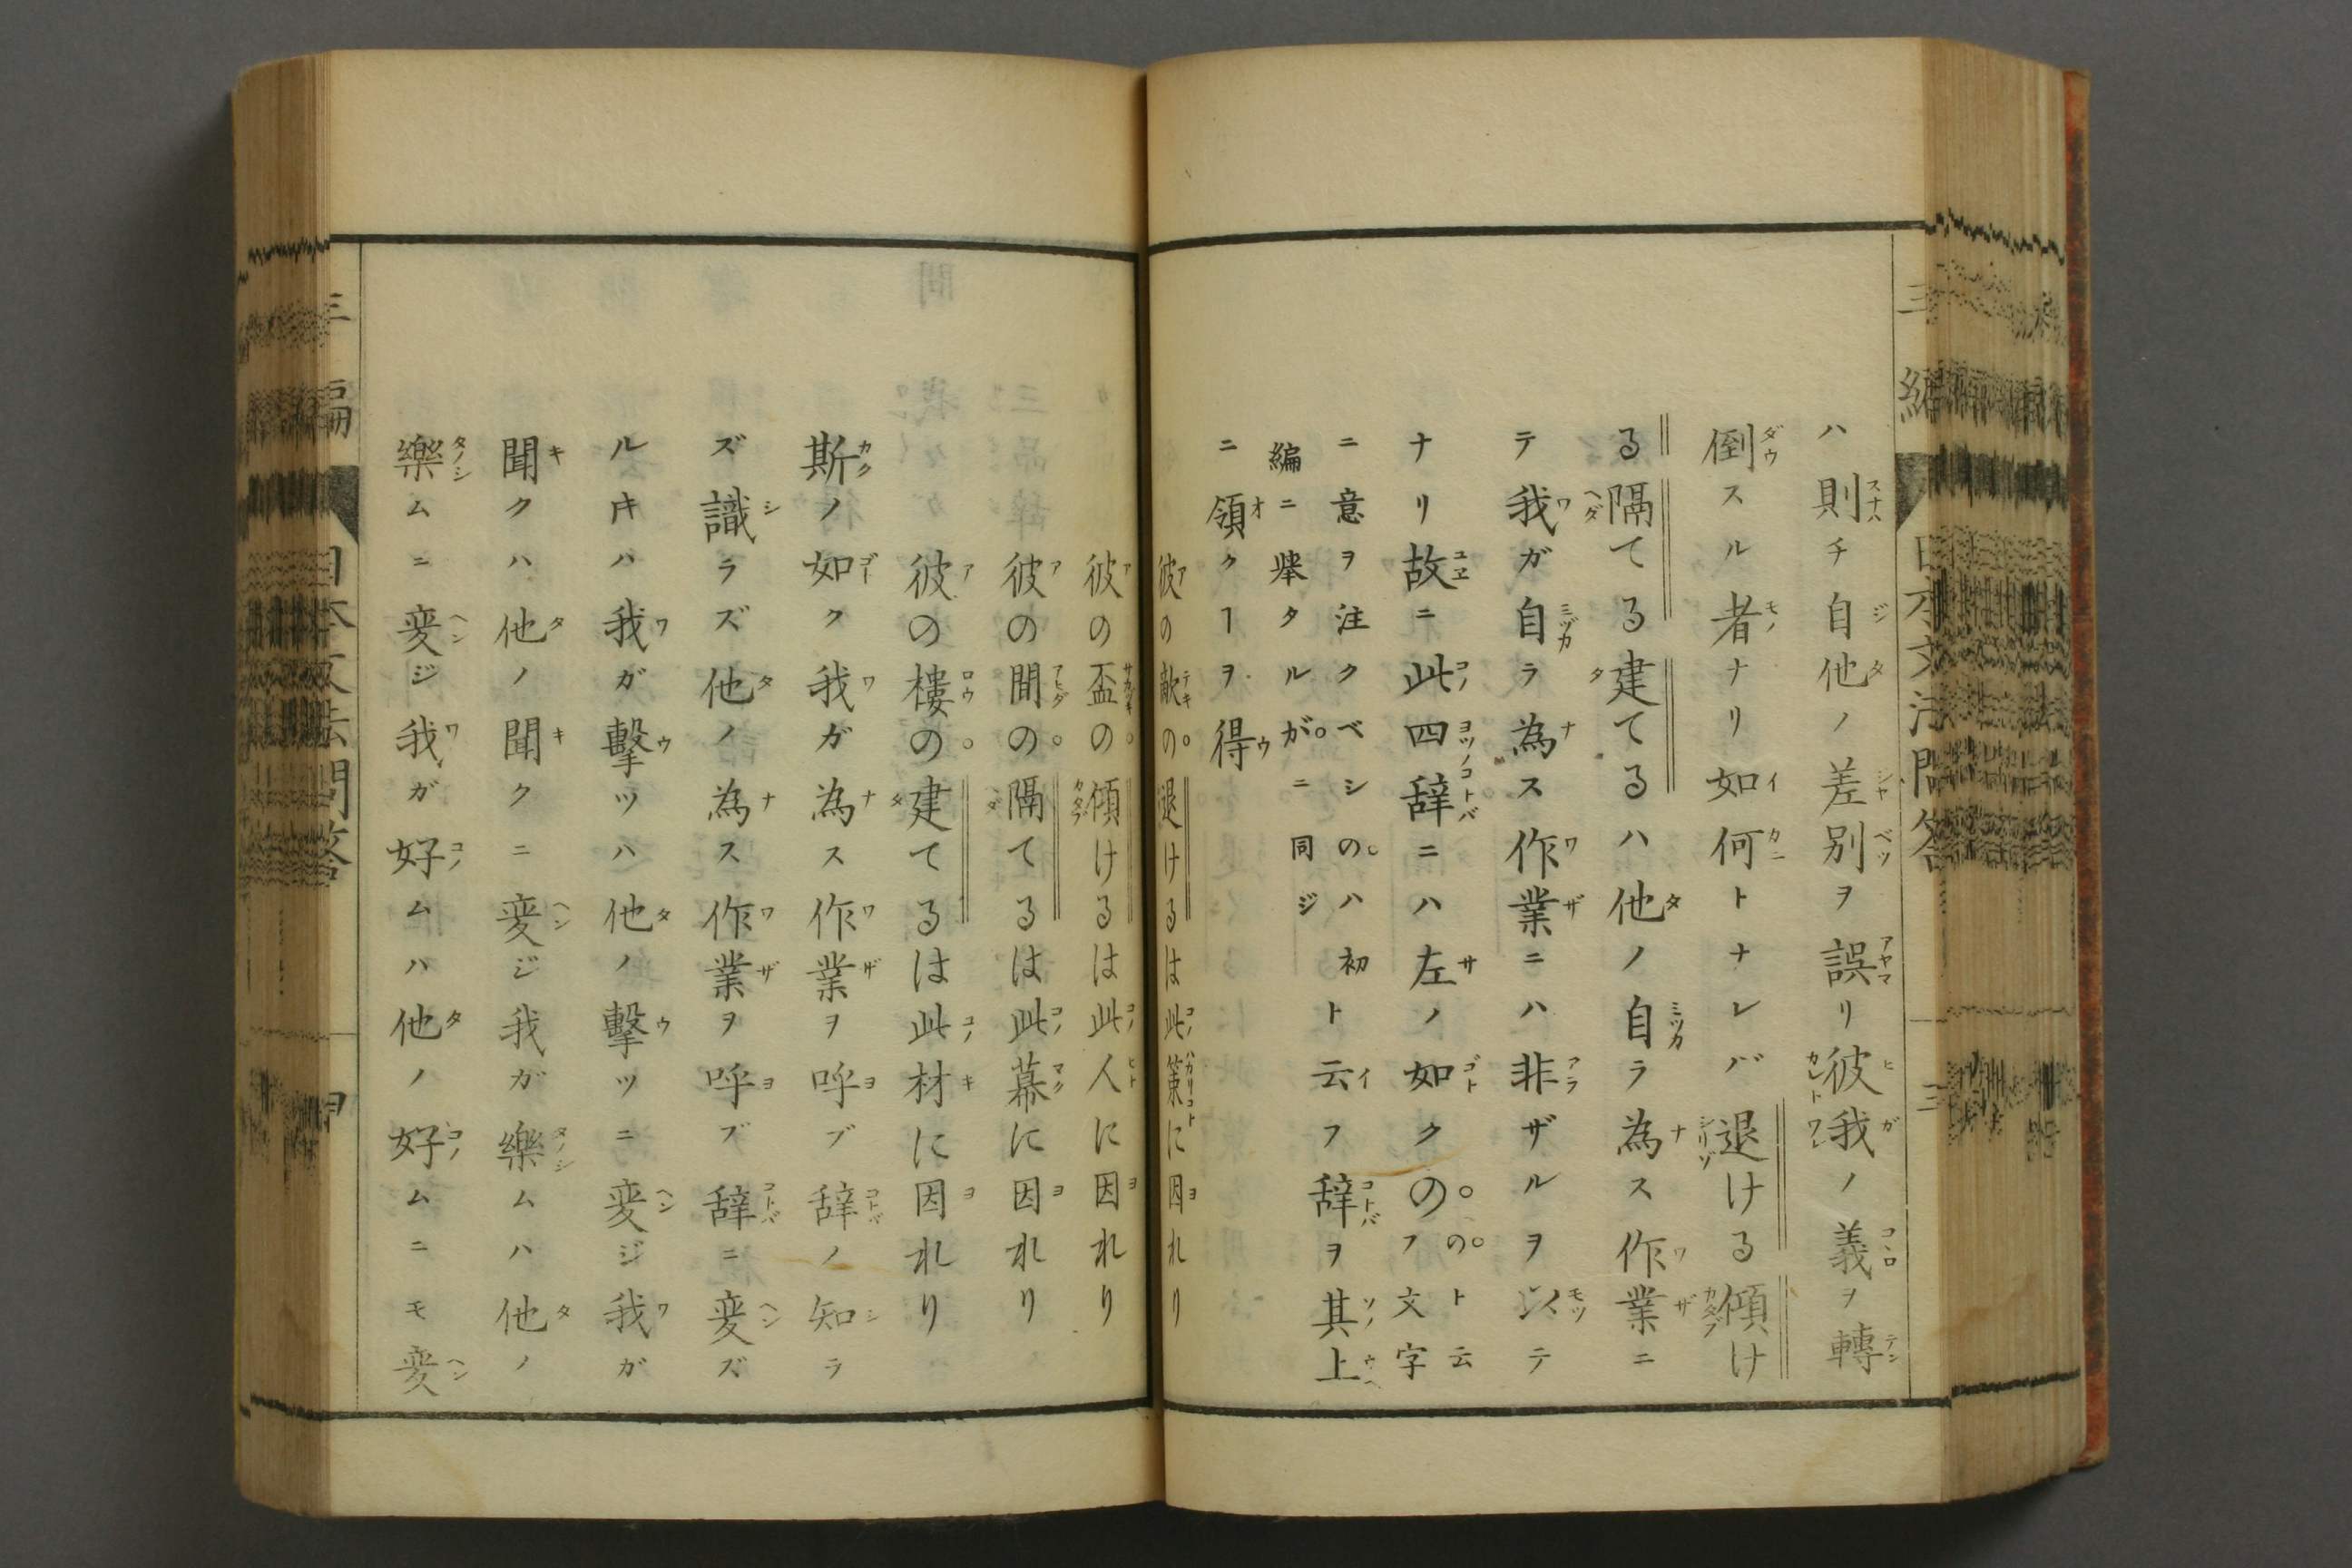 ハ則チ自他ノ差別ヲ誤リ彼我ノ義ヲ轉
倒スル者ナリ如何トナレバ退ける傾け
る隔てる建てるハ他ノ自ラ為ス作業ニ
テ我ガ自ラ為ス作業ニハ非ザルヲ以テ
ナリ故ニ此四辞ニハ左ノ如クの
のト云
フ文字
ニ意ヲ注クベシのハ初
編ニ舉タルがニ同ジ
ト云フ辞ヲ其上
ニ領クヿヲ得
彼の敵の退けるは此策に因れり
彼の盃の傾けるは此人に因れり
彼の間の隔てるは此幕に因れり
彼の樓の建てるは此材に因れり
斯ノ如ク我ガ為ス作業ヲ呼ブ辞ノ知ラ
ズ識ラズ他ノ為ス作業ヲ呼ブ辞ニ変ズ
ルキハ我ガ擊ツハ他ノ擊ツニ変ジ我ガ
聞クハ他ノ聞クニ変ジ我ガ樂ムハ他ノ
樂ムニ変ジ我ガ好ムハ他ノ好ムニモ変
三編
日本文法問答
三